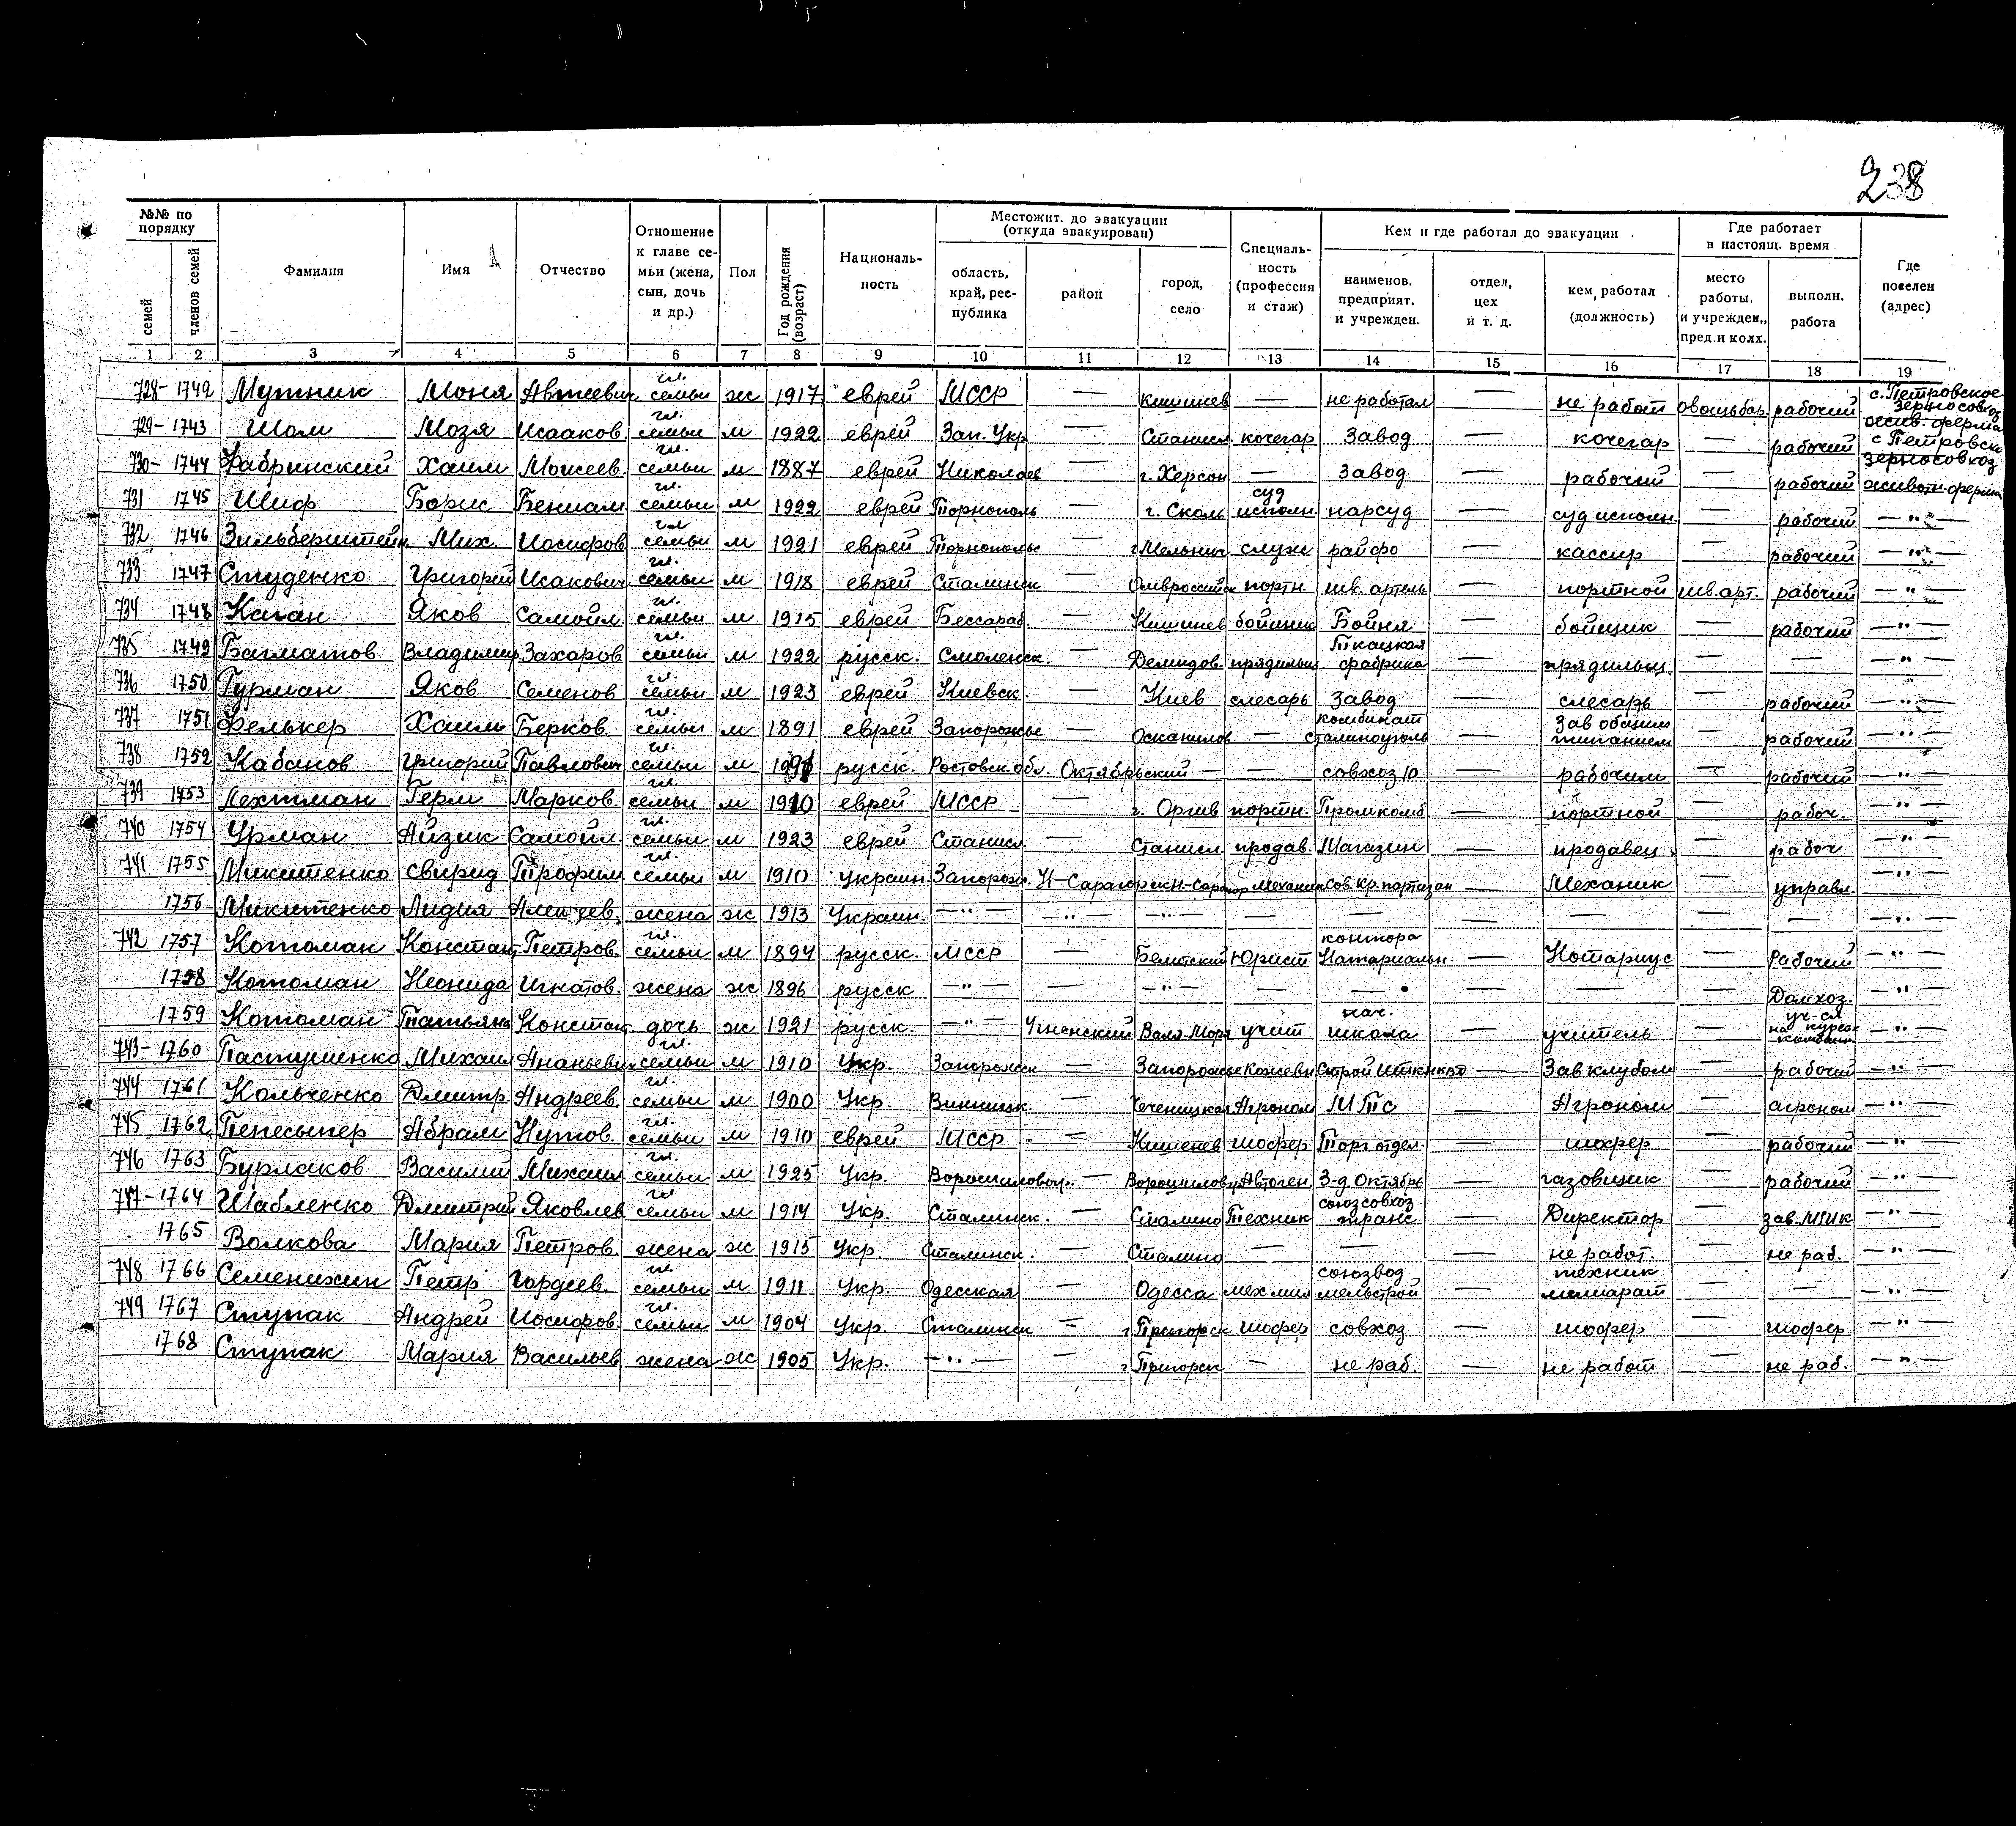 238
№№ по порядку | Фамилия | Имя | Отчество | Отношение к главе семьи (жена, сын, дочь и др.) | Пол | Год рождения (возраст) | Национальность | Местожит. до эвакуации (откуда эвакуирован) | Специальность (профессия и стаж) | Кем и где работал до эвакуации | Где работает в настоящ. время | Где поселен (адрес)
семей | членов семей | область, край, республика | район | город, село | наименов. предприят. и учрежден. | отдел, цех и т. д. | кем работал (должность) | место работы, и учрежден., пред. и колх. | выполн. работа
1 2 3 4 5 6 7 8 9 10 11 12 13 14 15 16 17 18 19
728- 1742 Мутник Моня Автеевич гл. семьи ж 1917 еврей МССР — кишинев — не работал — не работ овощьбар. рабочий с. Петровское зерносовхоз жив. ферма
729- 1743 Шом Мозя Исааков. гл. семьи м 1922 еврей Зап. Укр — Станисл. кочегар Завод — кочегар — рабочий с Петровско
730- 1744 Фабринский Хаим Моисеев. гл. семьи м 1887 еврей Николаев — г. Херсон — Завод — рабочий — рабочий зерносовхоз животн. ферма
731 1745 Шиф Борис Бениам. гл. семьи м 1922 еврей Торнополь — г. Сколь суд исполн. нарсуд — суд исполн. — рабочий — " —
732 1746 Зильберштейн Мих. Иосифов. гл. семьи м 1921 еврей Торнополье — г Мельниц служ райфо — кассир — рабочий — " —
733 1747 Студенко Григорий Исакович гл. семьи м 1918 еврей Сталинск — портн. шв. артель — портной шв. арт. рабочий — " —
734 1748 Каган Яков Самойл. гл. семьи м 1915 еврей Бессараб. — Кишинев бойщик Бойня — бойщик — рабочий — " —
735 1749 Багматов Владимир Захаров гл. семьи м 1922 русск. Смоленск. — Демидов. прядильщ Ткацкая фабрика — прядильщ. — — — " —
736 1750 Гурман Яков Семенов гл. семьи м 1923 еврей Киевск. — Киев слесарь Завод — слесарь — рабочий — " —
737 1751 Фелькер Хаим Берков. гл. семьи м 1891 еврей Запорожье — — комбинат сталиноуголь — Зав общим питанием — рабочий — " —
738 1752 Кабанов Григорий Павлович гл. семьи м русск. Ростовск. обл. Октябрьский — — совхоз 10 — рабочим — рабочий — " —
739 1753 Лехтман Герш Марков. гл. семьи м 1910 еврей МССР — г. Оргив портн. Промкомб — портной — рабоч. — " —
740 1754 Урман Айзик Самойл. гл. семьи м 1923 еврей Станисл. — Станисл. продав. Магазин — продавец. — рабоч — " —
741 1755 Микитенко Свирид Трофим гл. семьи м 1910 Украин. Запорож. Механик Сов. Кр. партизан — Механик — управл. — " —
1756 Микитенко Лидия Алексеев. жена ж 1913 Украин. — " — — " — — " — — — — — — — — " —
742 1757 Котоман Констант Петров. гл. семьи м 1894 русск. МССР — Бельтский Юрист контора Натариальн. — Нотариус — Рабочий — " —
1758 Котоман Неонида Игнатов. жена ж 1896 русск — " — — — " — — — — — — Домхоз. — " —
1759 Котоман Татьяна Констант. дочь ж 1921 русск. — " — Унгенский Валя-Моря учит нач. школа — учитель — уч-ся на курсах — " —
743- 1760 Пастушенко Михаил Ананьевич гл. семьи м 1910 Укр. Запорожск — Запорожье Кожевн — Зав клубом — рабочий — " —
744 1761 Кольченко Дмитр. Андреев гл. семьи м 1900 Укр. Винницк. — Агроном МТС — Агроном — агроном — " —
745 1762 Пепесыпер Абрам Нутов. гл. семьи м 1910 еврей МССР — Кишенев шофер Торг отдел. — шофер — рабочий — " —
746 1763 Бурлаков Василий Михаил гл. семьи м 1925 Укр. Ворошиловогр. — Ворошиловгр Автоген. З-д Октябрь — газовщик — рабочий — " —
747- 1764 Шабленко Дмитрий Яковлев гл. семьи м 1914 Укр. Сталинск. — Сталино Техник союзсовхоз транс — Директор — зав. МТМ — " —
1765 Волкова Мария Петров. жена ж 1915 Укр. Сталинск. — Сталино — — — не работ. — не раб. — " —
748 1766 Семенихин Петр Гордеев. гл. семьи м 1911 Укр. Одесская — Одесса мех мил союзвод мельстрой — техник — — — " —
749 1767 Ступак Андрей Иосифов. гл. семьи м 1904 Укр. Сталинск — г Пригорск шофер совхоз — шофер — шофер — " —
1768 Ступак Мария Васильев жена ж 1905 Укр. — " — — г Пригорск — не раб. — не работ — не раб. — " —